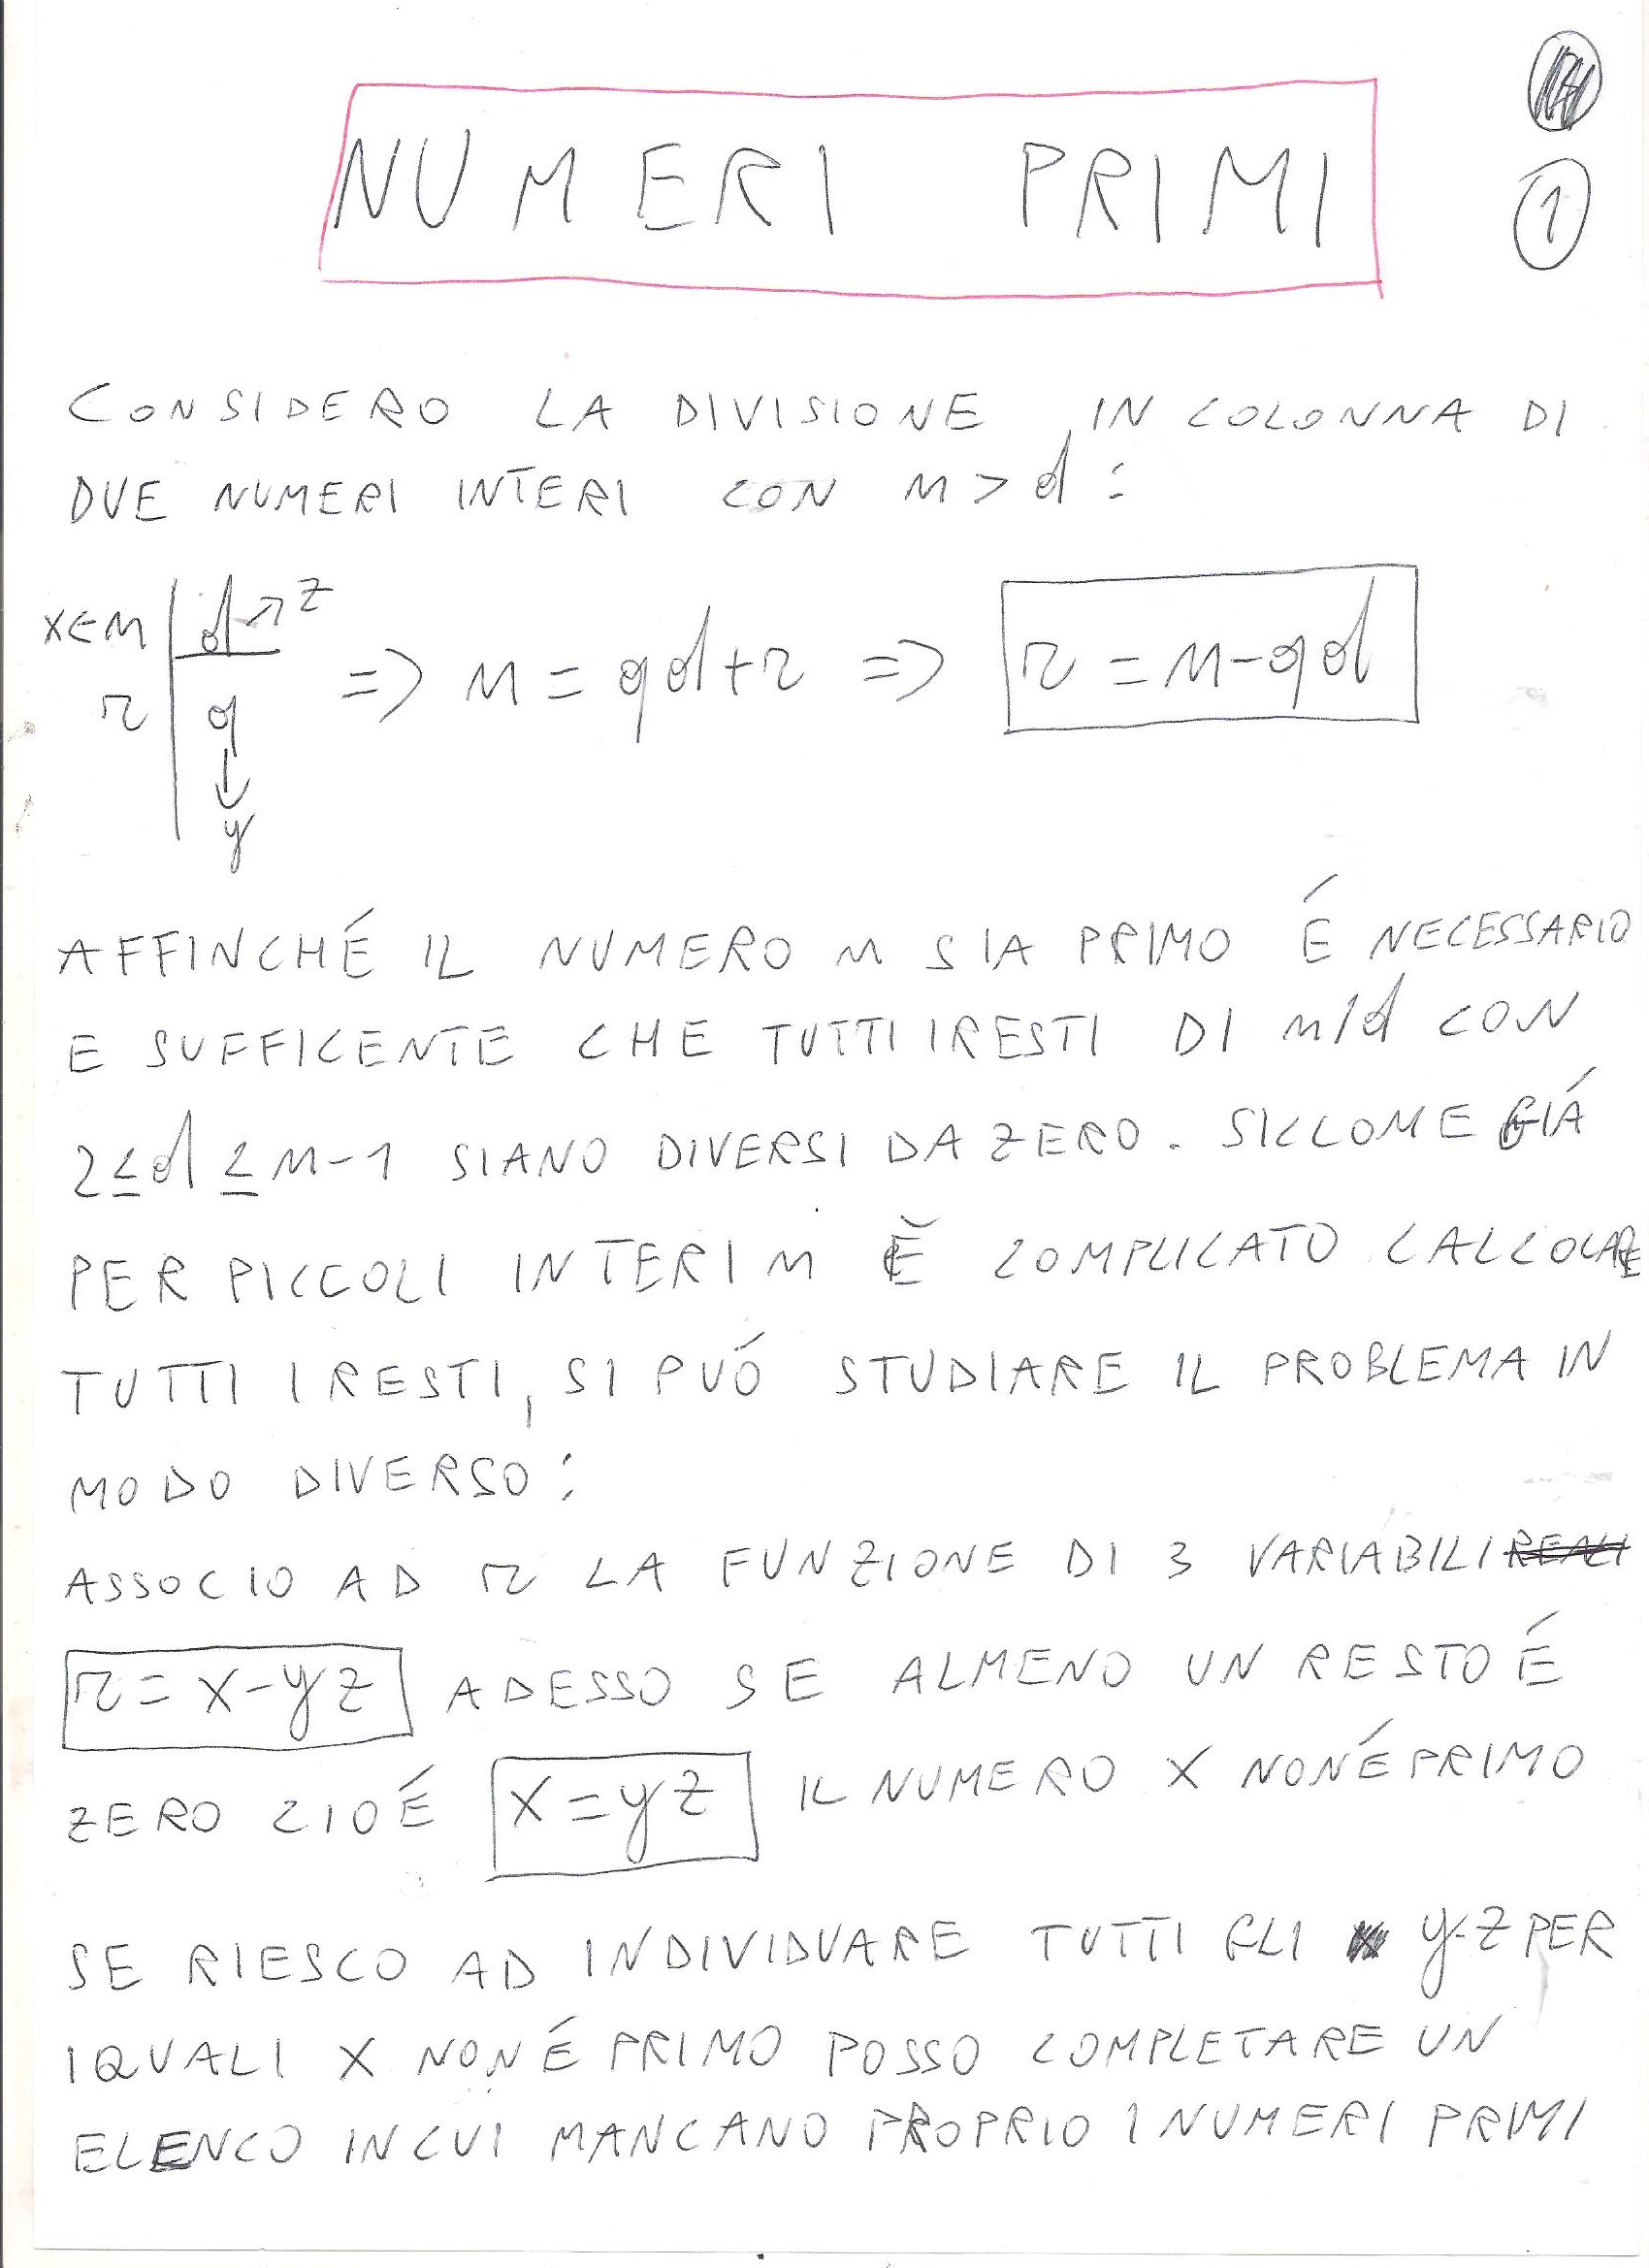 NUMERI PRIMI
1
CONSIDERO LA DIVISIONE IN COLONNA DI
DUE NUMERI INTERI CON n > d :
x←n | d→z
r | q => n = qd+r => r = n-qd
↓
y
AFFINCHÉ IL NUMERO n SIA PRIMO É NECESSARIO
E SUFFICENTE CHE TUTTI I RESTI DI n/d CON
2≤d≤n-1 SIANO DIVERSI DA ZERO. SICCOME GIÁ
PER PICCOLI INTERI n È COMPLICATO CALCOLARE
TUTTI I RESTI, SI PUÓ STUDIARE IL PROBLEMA IN
MODO DIVERSO:
ASSOCIO AD r LA FUNZIONE DI 3 VARIABILI REALI
r = x-yz ADESSO SE ALMENO UN RESTO É
ZERO CIOÉ x=yz IL NUMERO X NON É PRIMO
SE RIESCO AD INDIVIDUARE TUTTI GLI y-z PER
I QUALI X NON É PRIMO POSSO COMPLETARE UN
ELENCO IN CUI MANCANO PROPRIO I NUMERI PRIMI